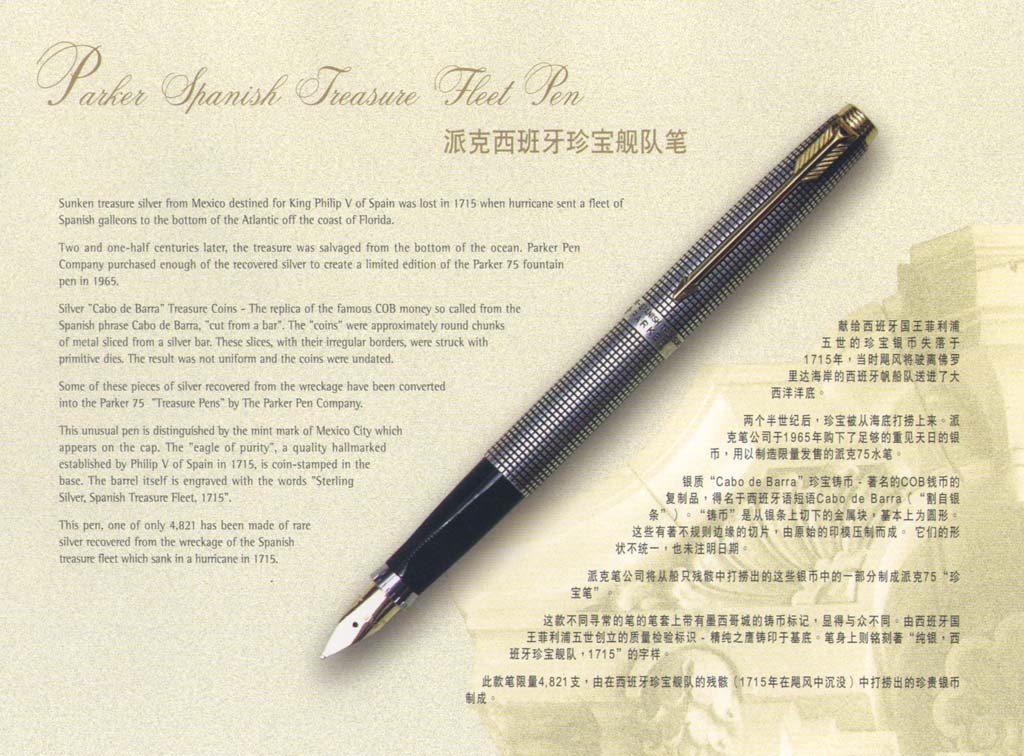 Parker Spanish Treasure Fleet Pen
派克西班牙珍宝舰队笔
Sunken treasure silver from Mexico destined for King Philip V of Spain was lost in 1715 when hurricane sent a fleet of
Spanish galleons to the bottom of the Atlantic off the coast of Florida.
Two and one-half centuries later, the treasure was salvaged from the bottom of the ocean. Parker Pen
Company purchased enough of the recovered silver to create a limited edition of the Parker 75 fountain
pen in 1965.
Silver "Cabo de Barra" Treasure Coins - The replica of the famous COB money so called from the
Spanish phrase Cabo de Barra, "cut from a bar". The "coins" were approximately round chunks
of metal sliced from a silver bar. These slices, with their irregular borders, were struck with
primitive dies. The result was not uniform and the coins were undated.
Some of these pieces of silver recovered from the wreckage have been converted
into the Parker 75 "Treasure Pens" by The Parker Pen Company.
This unusual pen is distinguished by the mint mark of Mexico City which
appears on the cap. The "eagle of purity", a quality hallmarked
established by Philip V of Spain in 1715, is coin-stamped in the
base. The barrel itself is engraved with the words "Sterling
Silver, Spanish Treasure Fleet, 1715".
This pen, one of only 4,821 has been made of rare
silver recovered from the wreckage of the Spanish
treasure fleet which sank in a hurricane in 1715.
献给西班牙国王菲利浦
五世的珍宝银币失落于
1715年，当时飓风将驶离佛罗
里达海岸的西班牙帆船队送进了大
西洋洋底。
两个半世纪后，珍宝被从海底打捞上来。派
克笔公司于1965年购下了足够的重见天日的银
币，用以制造限量发售的派克75水笔。
银质“Cabo de Barra”珍宝铸币 - 著名的COB钱币的
复制品，得名于西班牙语短语Cabo de Barra（“割自银
条”）。“铸币”是从银条上切下的金属块，基本上为圆形。
这些有著不规则边缘的切片，由原始的印模压制而成。 它们的形
状不统一，也未注明日期。
派克笔公司将从船只残骸中打捞出的这些银币中的一部分制成派克75“珍
宝笔”。
这款不同寻常的笔的笔套上带有墨西哥城的铸币标记，显得与众不同。由西班牙国
王菲利浦五世创立的质量检验标识 - 精纯之鹰铸印于基底。笔身上则铭刻著“纯银，西
班牙珍宝舰队，1715”的字样。
此款笔限量4,821支，由在西班牙珍宝舰队的残骸（1715年在飓风中沉没）中打捞出的珍贵银币
制成。